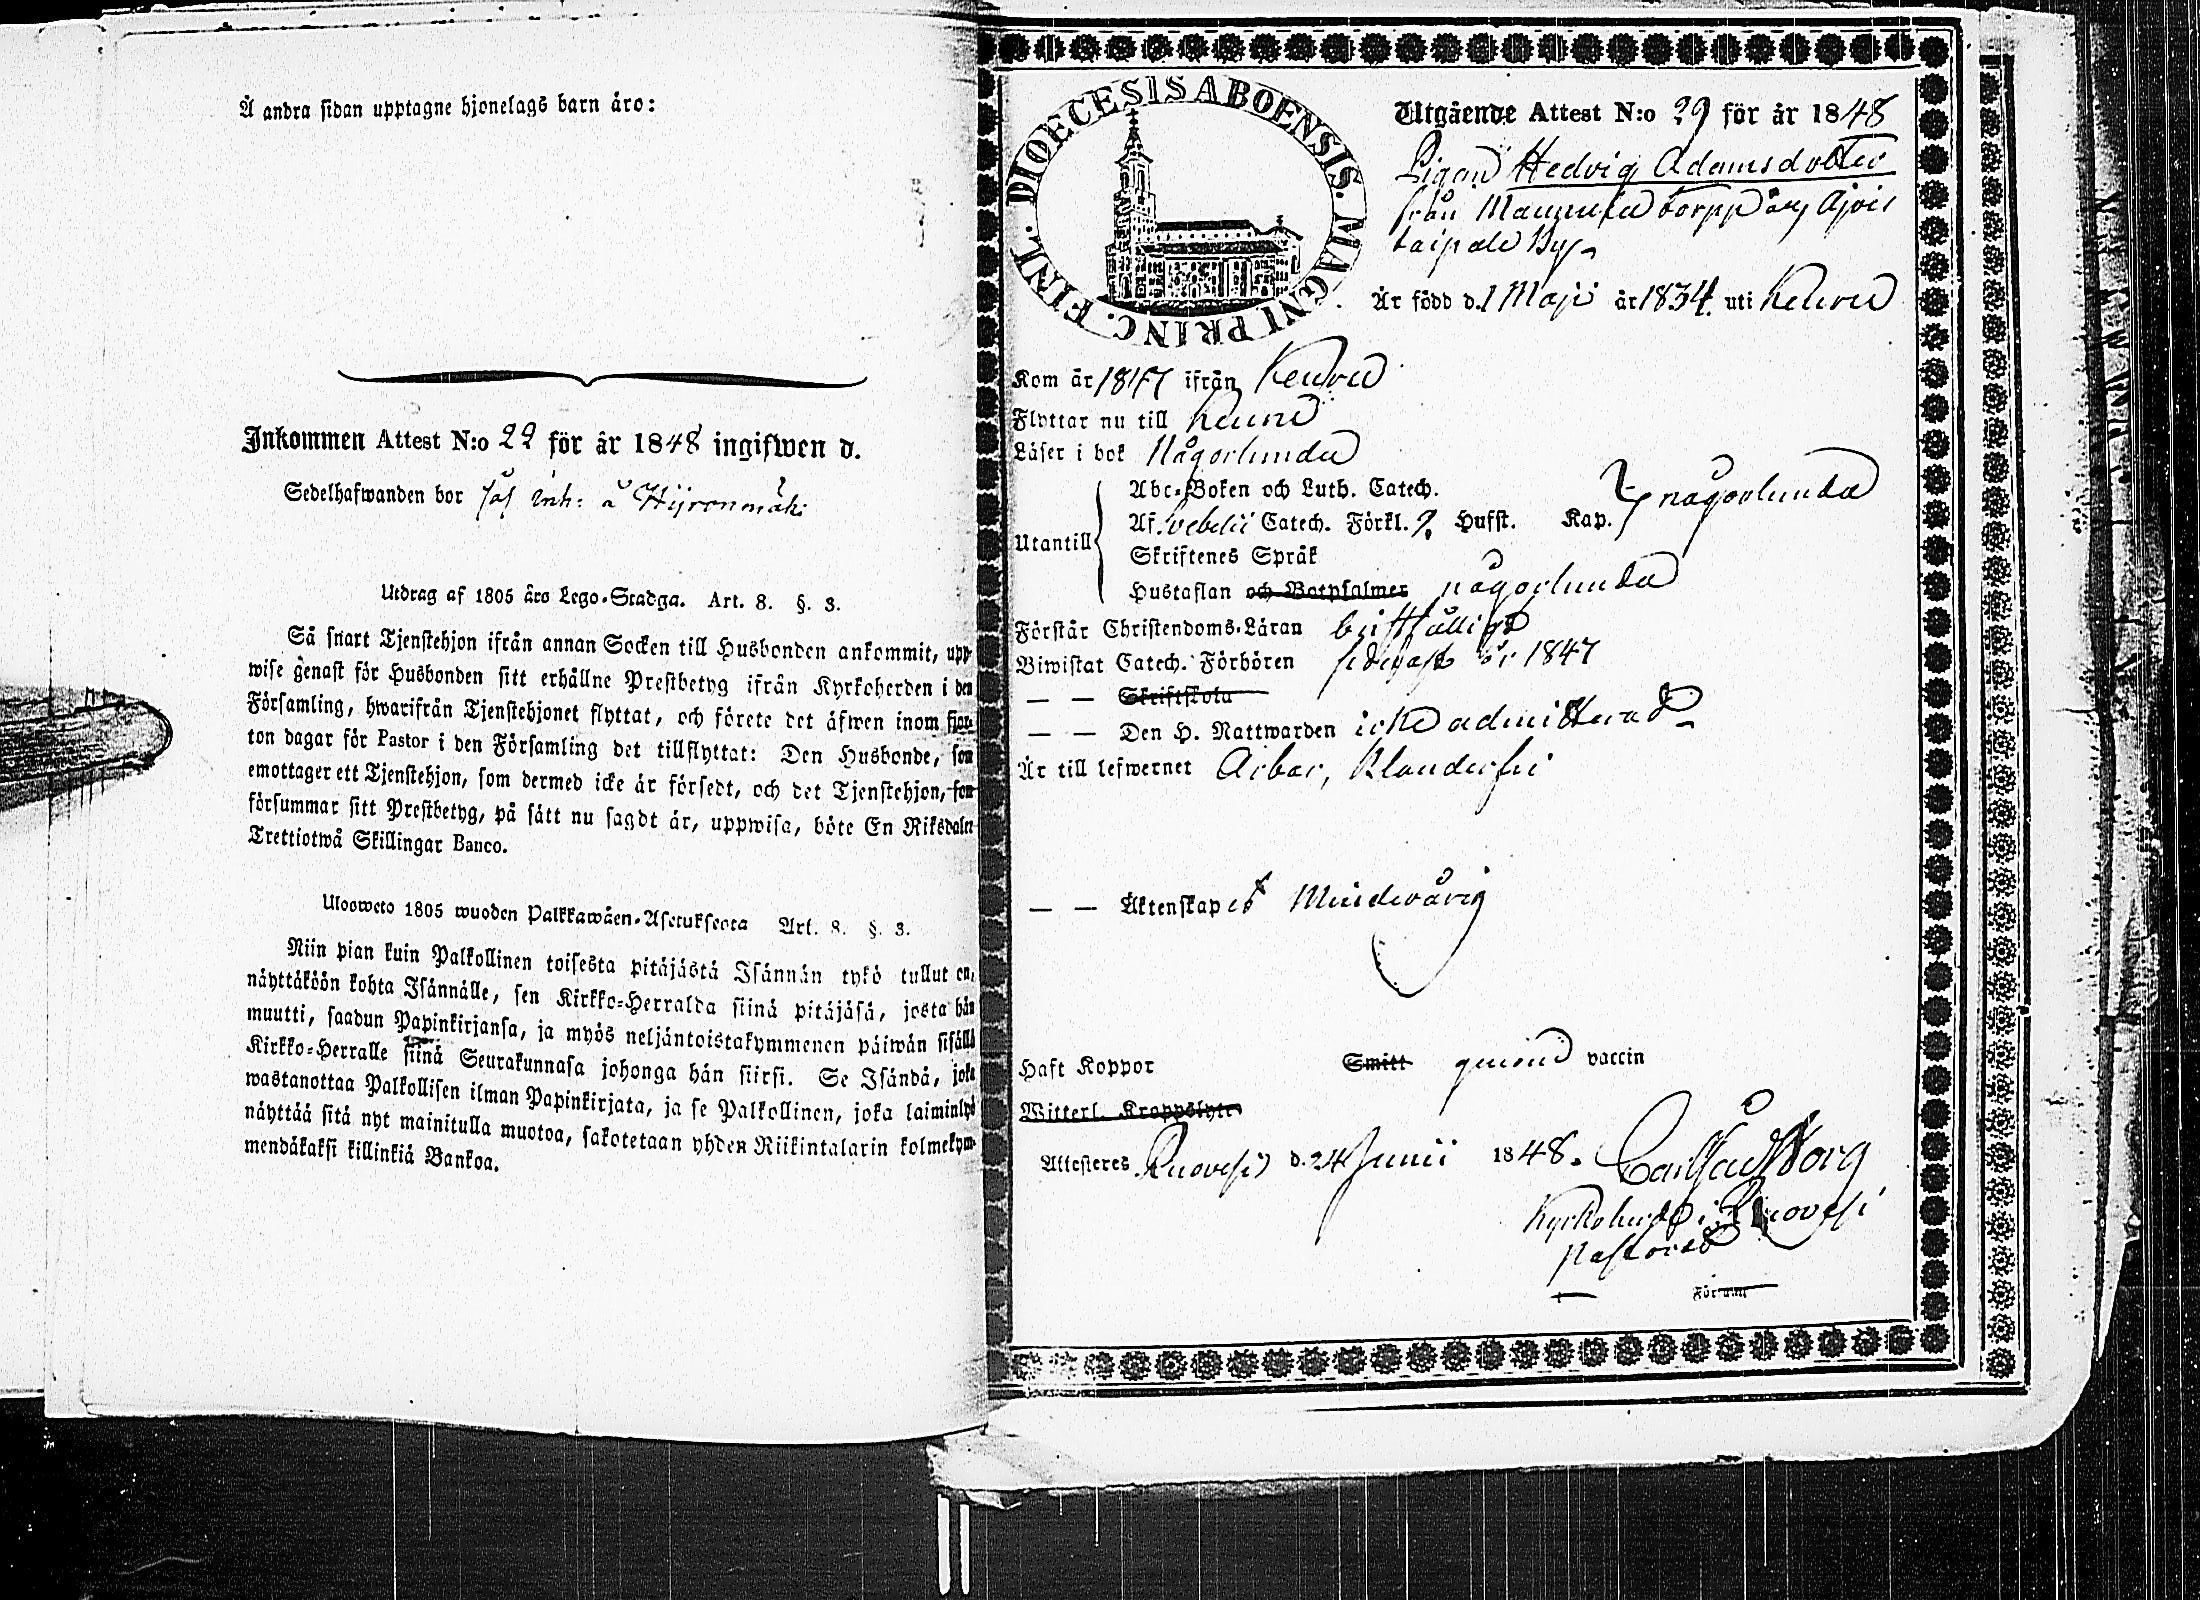 Å andra sidan upptagne hjonelags barn äro:
Inkommen Attest N:o 22 för år 1848 ingifwen d.
Sedelhafwanden bor inh: å Hijronmäki
Utdrag af 1805 års Lego-Stadga. Art. 8. §. 3.
Så snart Tjenstehjon ifrån annan Socken till Husbonden ankommit, upp-
wise genast för Husbonden sitt erhållne Prestbetyg ifrån Kyrkoherden i den
Församling, hwarifrån Tjenstehjonet flyttat, och förete det äfwen inom fjor-
ton dagar för Pastor i den Församling det tillflyttat: Den Husbonde, som
emottager ett Tjenstehjon, som dermed icke är försedt, och det Tjenstehjon, som
försummar sitt Prestbetyg, på sätt nu sagdt är, uppwisa, böte En Riksdaler
Trettiotwå Skillingar Banco.
Ulosweto 1805 wuoden Palkkawäen-Asetuksesta Art. 8. §. 3.
Niin pian kuin Palkollinen toisesta pitäjästä Isännän tykö tullut on,
näyttäköön kohta Isännälle, sen Kirkko-Herralda siinä pitäjäsä, josta hän
muutti, saadun Papinkirjansa, ja myös neljäntoistakymmenen päiwän sisällä
Kirkko-Herralle siinä Seurakunnasa johonga hän siirsi. Se Isändä, joka
wastanottaa Palkollisen ilman Papinkirjata, ja se Palkollinen, joka laiminlyö
näyttää sitä nyt mainitulla muotoa, sakotetaan yhden Riikintalarin kolmekym-
mendäkaksi killinkiä Bankoa.
DIOECESIS ABOENSIS. MAGNI PRINC. FINL.
Utgående Attest N:o 29 för år 1848
Pigan Hedvig Adamsdotter
från Maununen torpp av Ajois
taipale By
Är född d. 1 Maji år 1834. uti Keuru
Kom år 1847 ifrån Keuru
Flyttar nu till Keuru
Läser i bok Någorlunda
Abc-Boken och Luth. Catech.
någorlunda
Utantill
Af Svebelii Catech. Förkl. 2. Hufst. Kap.
Skriftenes Språk
Hustaflan och Botpsalmer någorlunda
Förstår Christendoms-Läran bristfälligt
Biwistat Catech. Förhören sidst år 1847
— — Skriftskola
— — Den H. Nattwarden icke admitterad
Är till lefwernet Ärbar, Klanderfri
— — Äktenskapet Minderårig
Haft Koppor Smitt genom vaccin
Witterl. Kroppslyte
Attesteres Ruovesi d. 24 Junii 1848. Borg
Kyrkoherde i Ruovesi
Pastorat
Församl